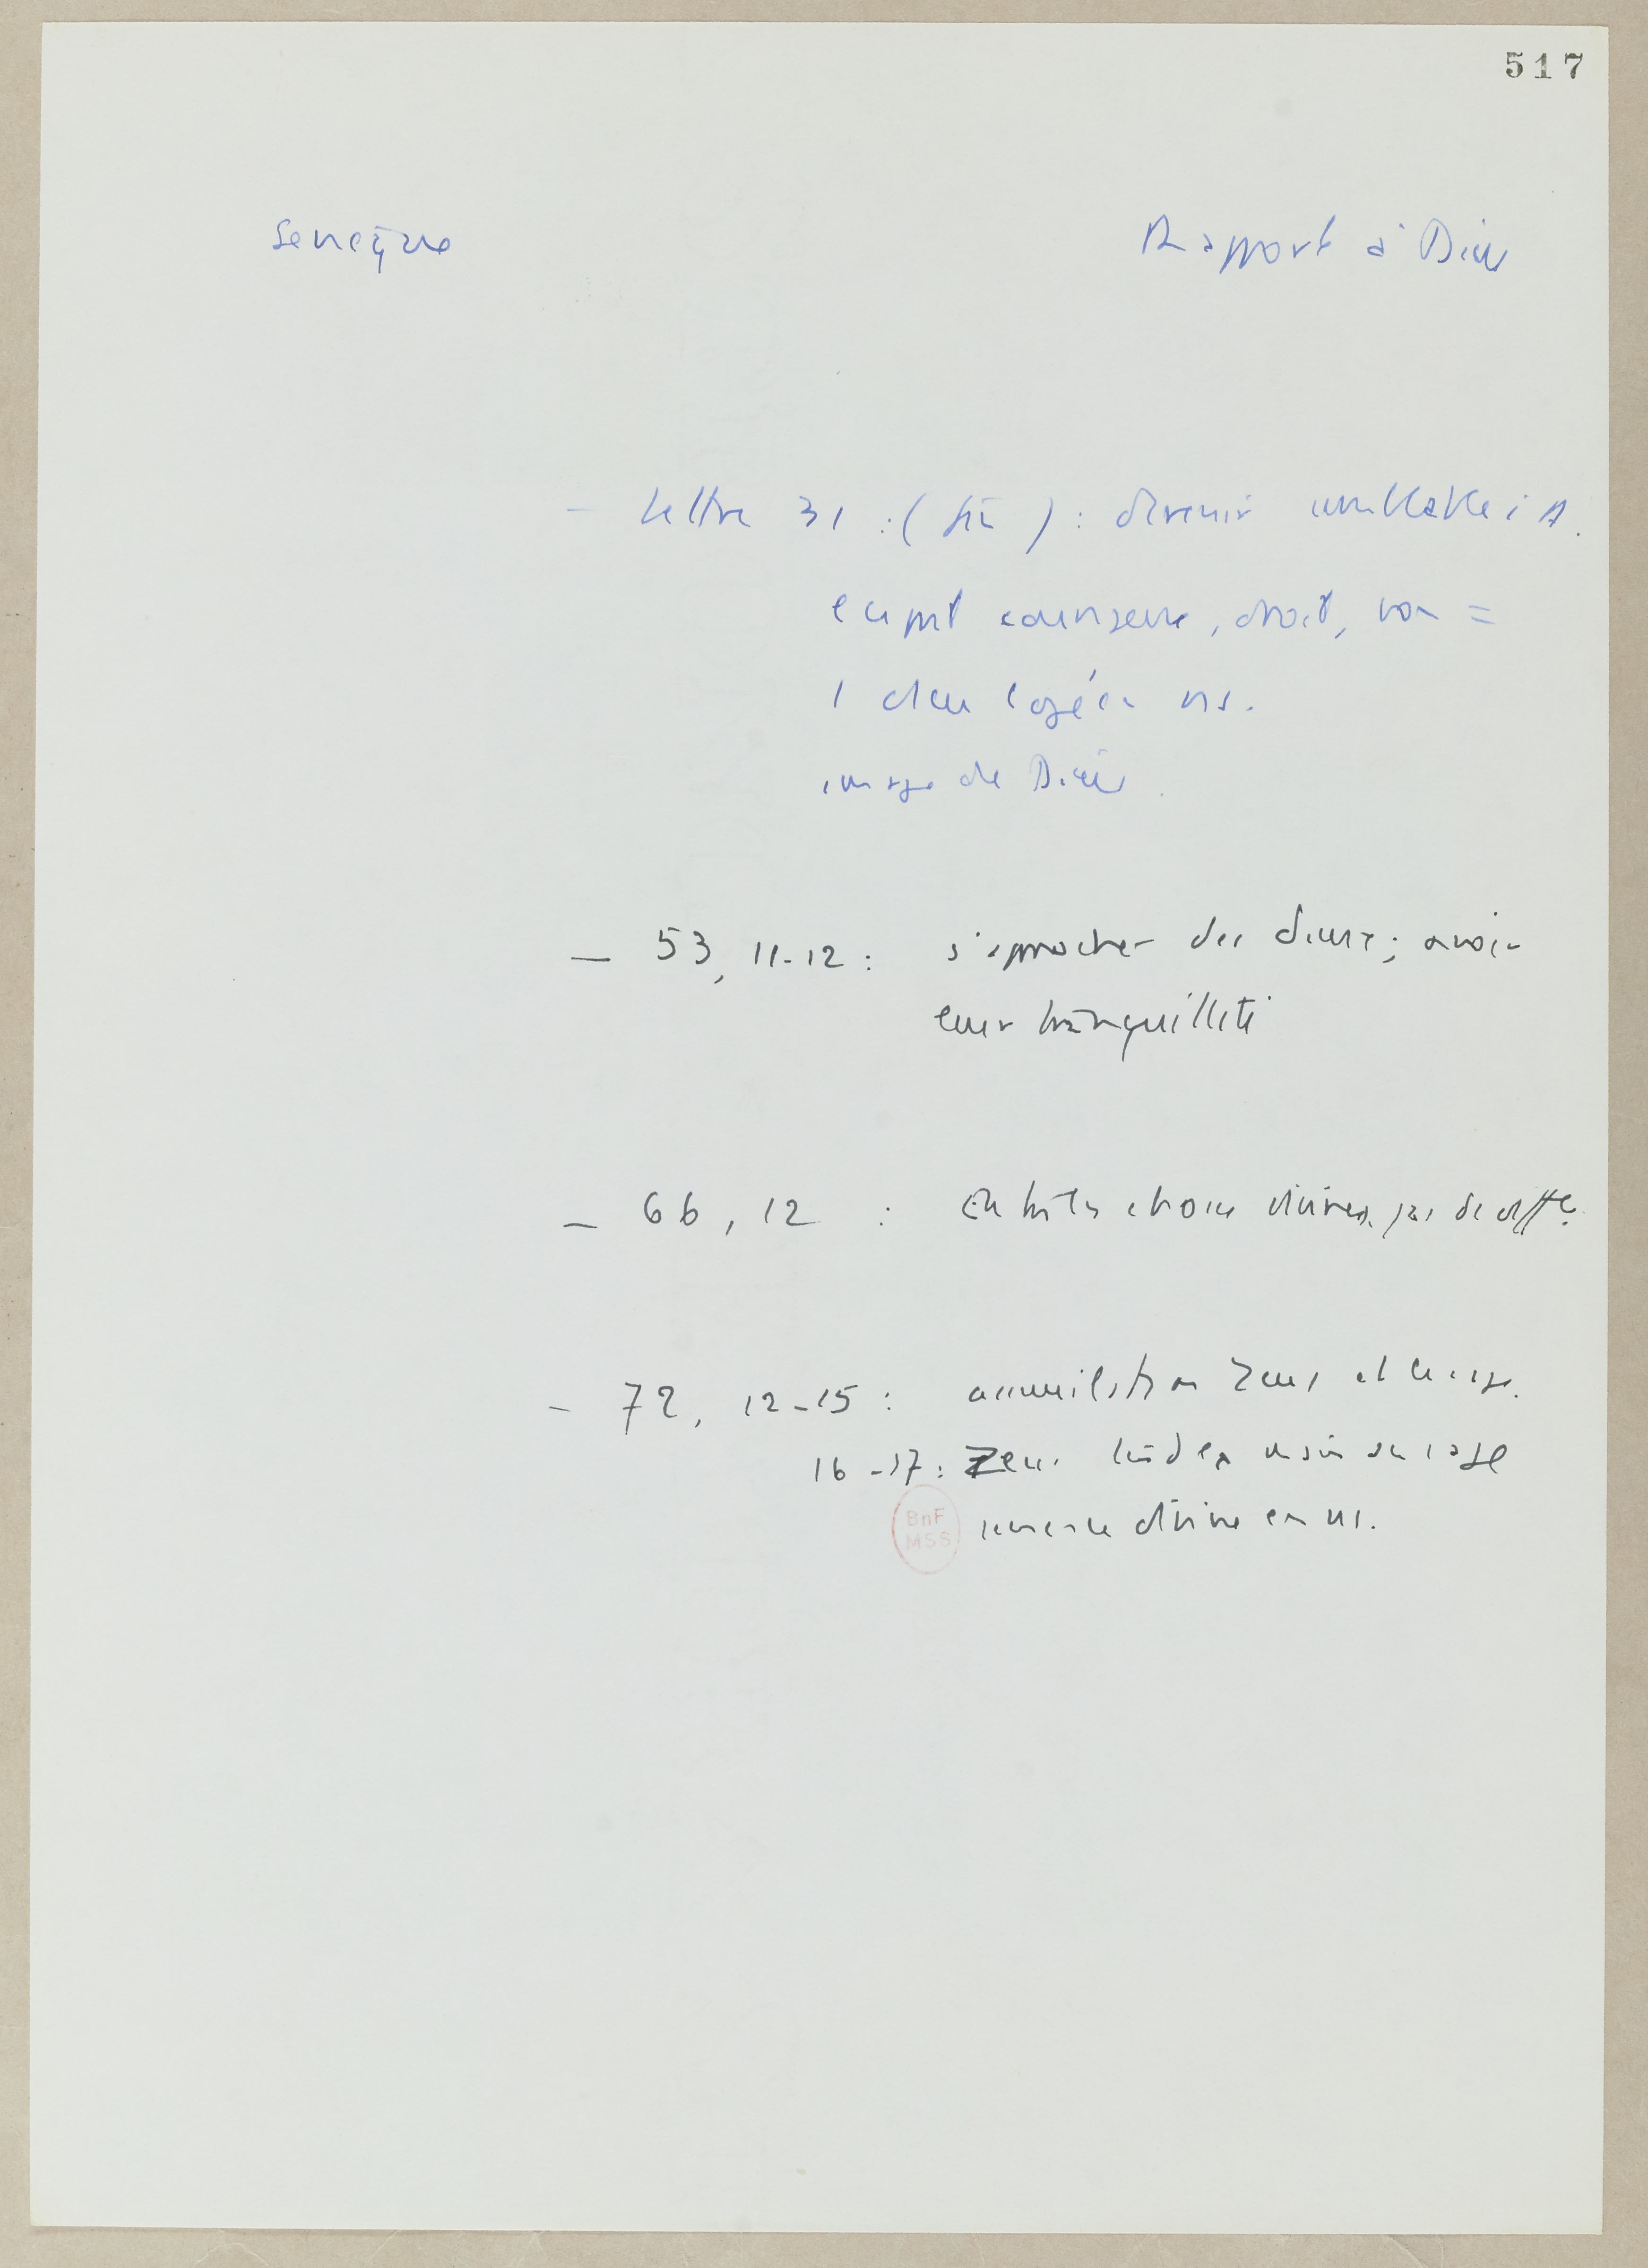 517
Sénèque
Rapport à Dieu
- Lettre 31 : (fin) : devenir semblable à D.
esprit courageux, droit, bon =
1 dieu logé en ns.
image de Dieu.
- 53, 11-12 : s'approcher des dieux ; avoir
leur tranquillité
- 66, 12 : Entre les choses divines, pas de diffce.
- 72, 12-15 : assimilation Zeus et le sage.
16-17 : Zeus tend la main au sage
semence divine en ns.
BnF
MSS